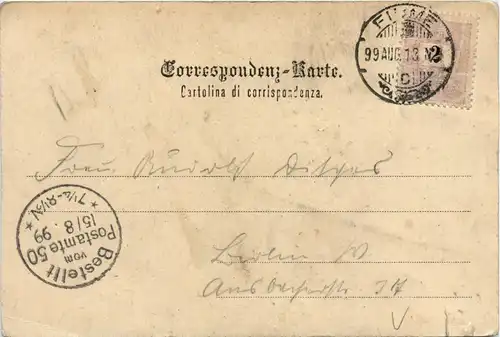 FIUME
99 AUG 13
C
2
Correspondenz-Karte.
Cartolina di corrispondenza.
Frau Rudolf
Berlin W
Ansbacherstr 34
Bestellt
vom
Postamte 50
15/8.99
* 7¼-8½N *